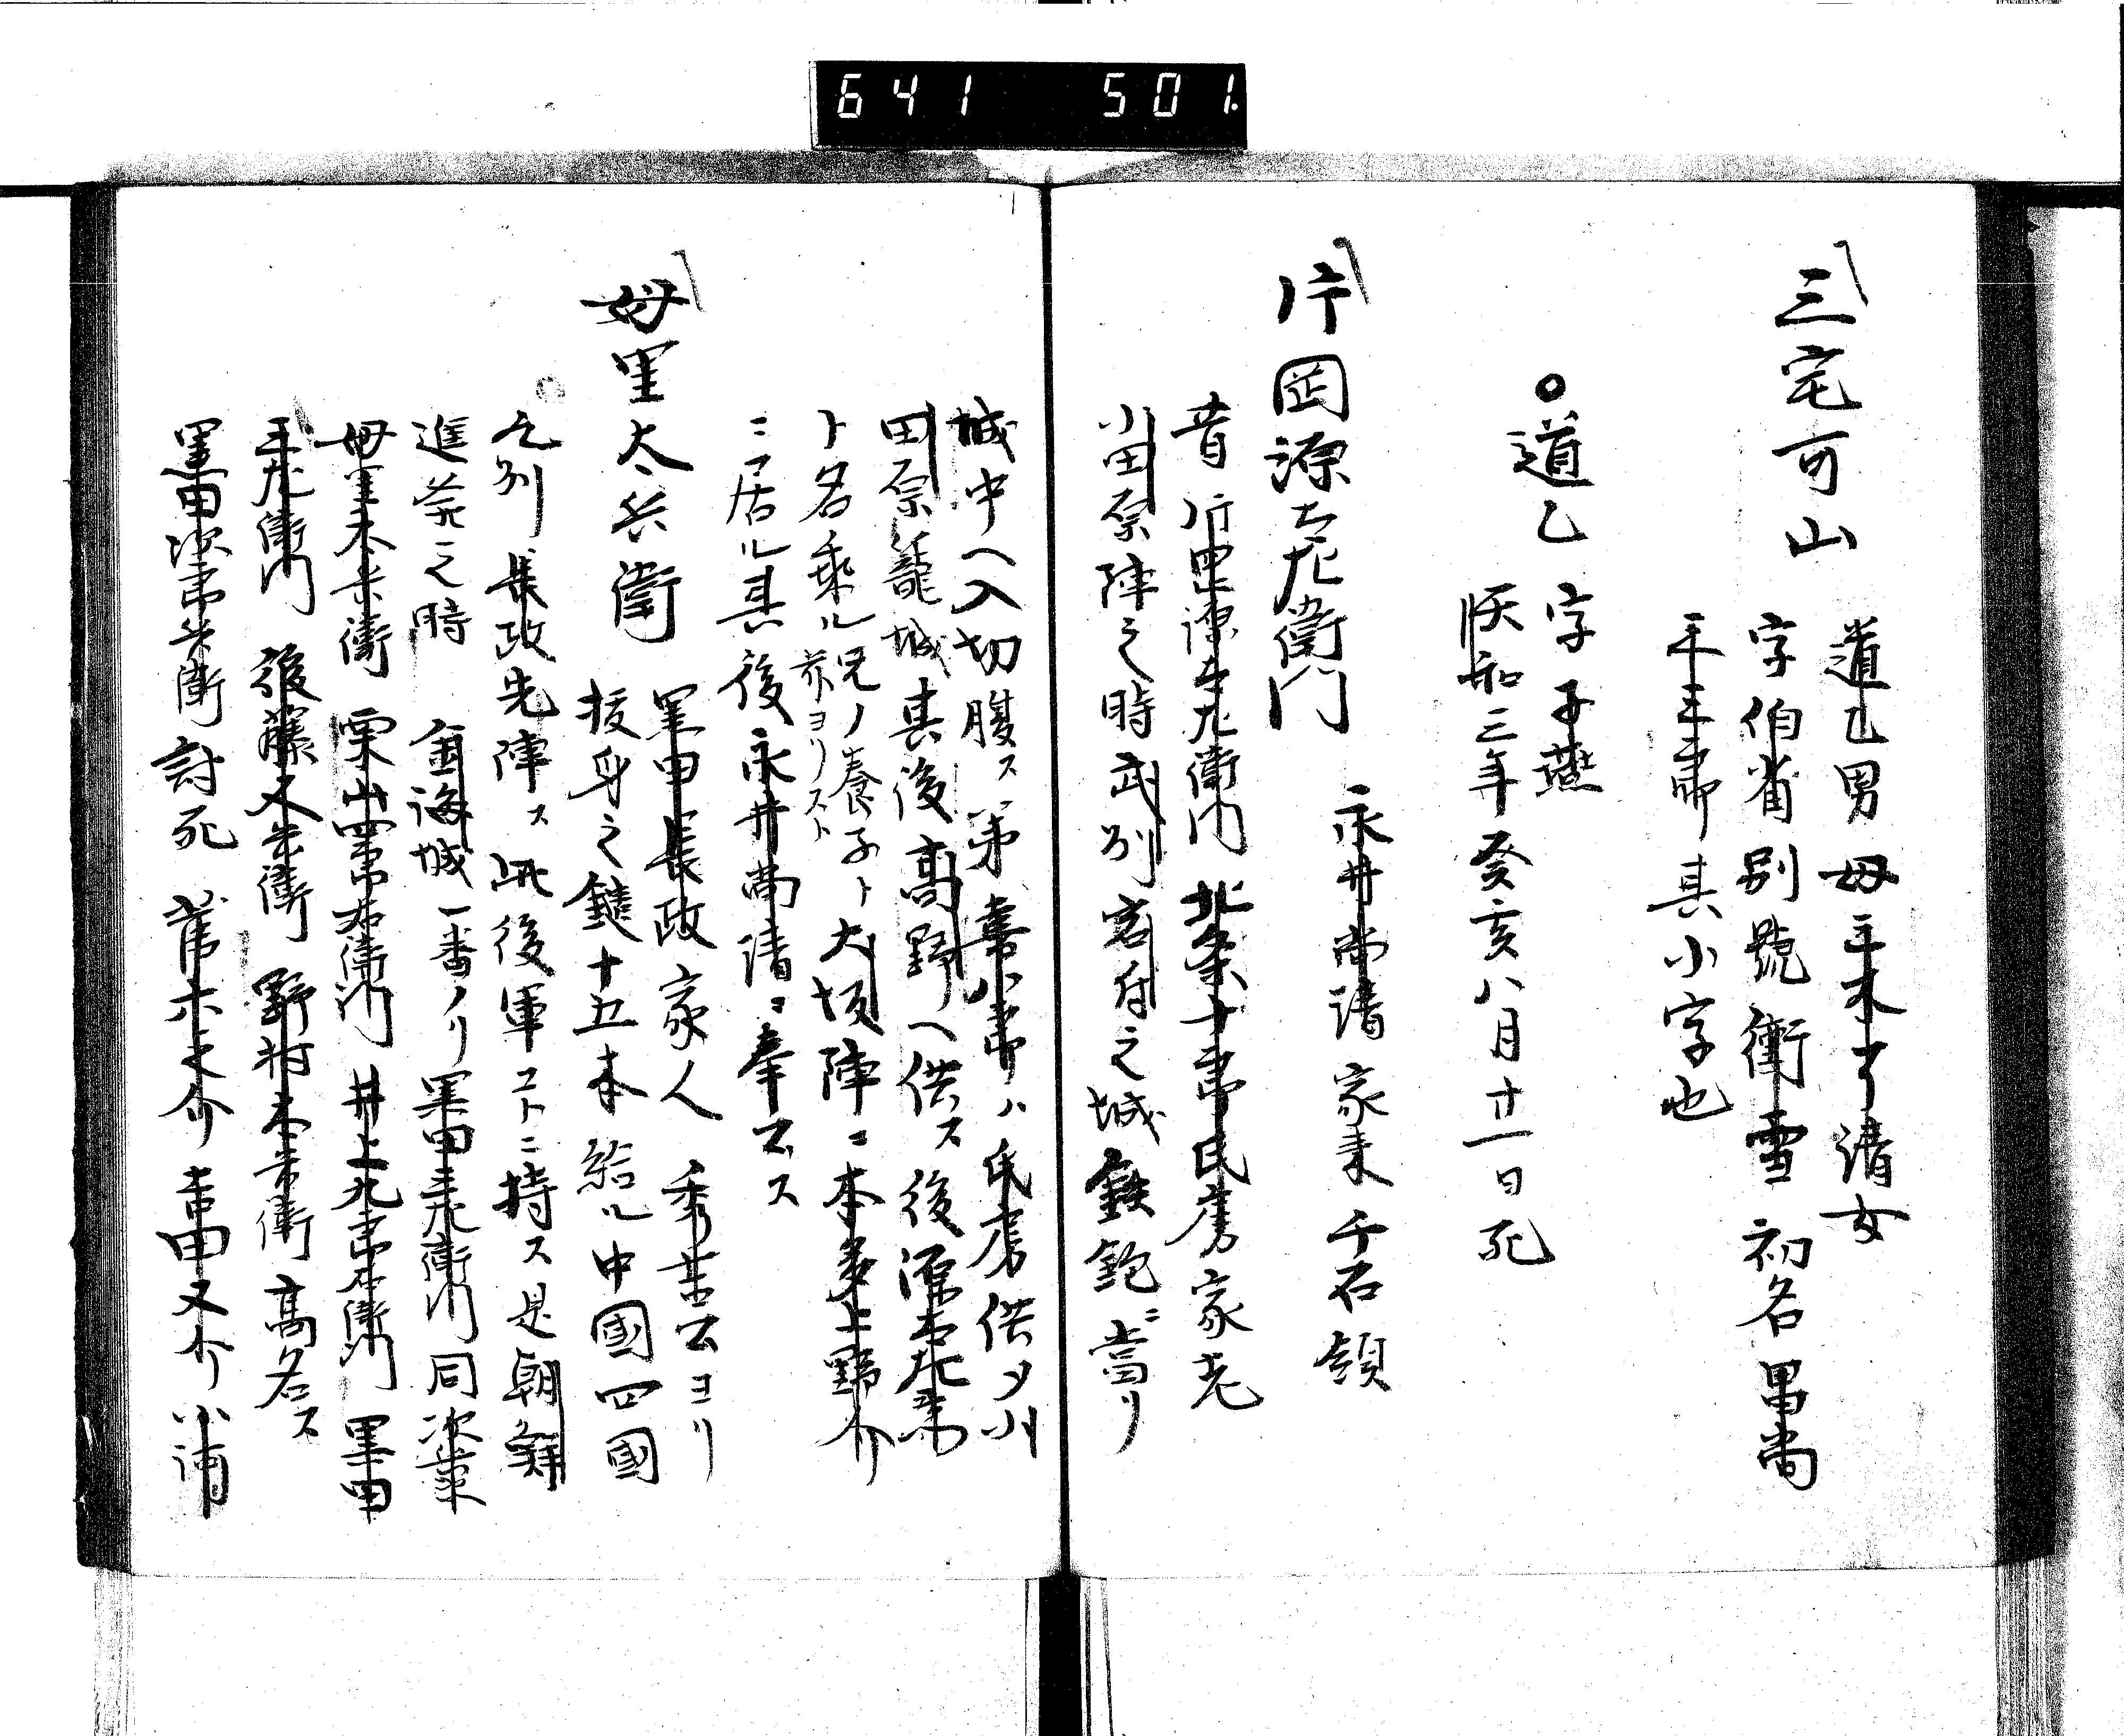 641 501.
三宅可山
道乙男 母三木了清女
字伯省 別號衝雪 初名昌尚
平三郎其小字也
○道乙 字子燕
天和三年癸亥八月十一日死
片岡源五左衛門 永井尚清家来 千石領
昔片岡源五左衛門北条十郎氏房家老
小田原陣之時武列岩付之城鉄鉋ニ当リ
城中ヘ入切腹ス弟喜八郎ハ氏房供タ小
田原籠城其後高野ヘ供ス後源左衛門
ト名乗ル兄ノ養子ト大坂陣ニ本多上野介
ニ居ル其後永井尚清ニ奉公ス
母里太兵衛 黒田長政家人 秀吉公ヨリ
抜身之鑓十五本給ル中國四國
九列長政先陣ス此後軍コトニ持ス是朝鮮
進発之時 金海城一番ノリ黒田三左衛門同次兵
母里太兵衛 栗山四郎右衛門 井上九郎右衛門 黒田
三左衛門 後藤又兵衛 野村太兵衛高名ス
黒田次郎兵衛討死 吉田又介小浦